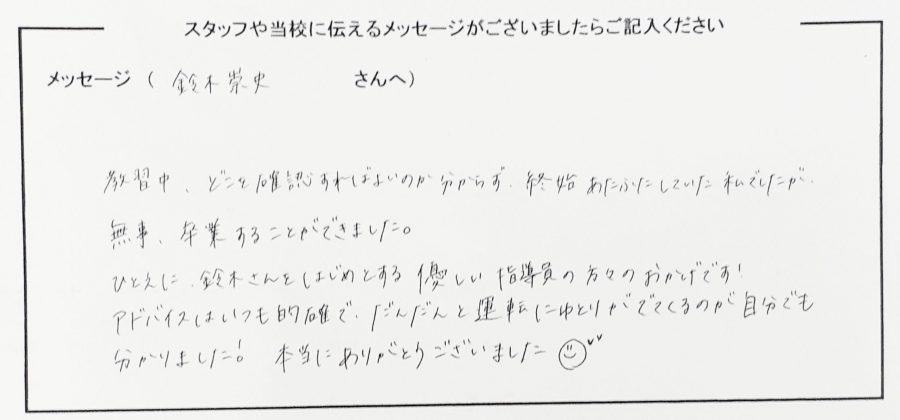 スタッフや当校に伝えるメッセージがございましたらご記入ください
メッセージ （ 鈴木崇史 さんへ）
教習中、どこを確認すればよいのか分からず、終始あたふたしていた私でしたが、
無事、卒業することができました。
ひとえに、鈴木さんをはじめとする優しい指導員の方々のおかげです！
アドバイスはいつも的確で、だんだんと運転にゆとりがでてくるのが自分でも
分かりました！ 本当にありがとうございました